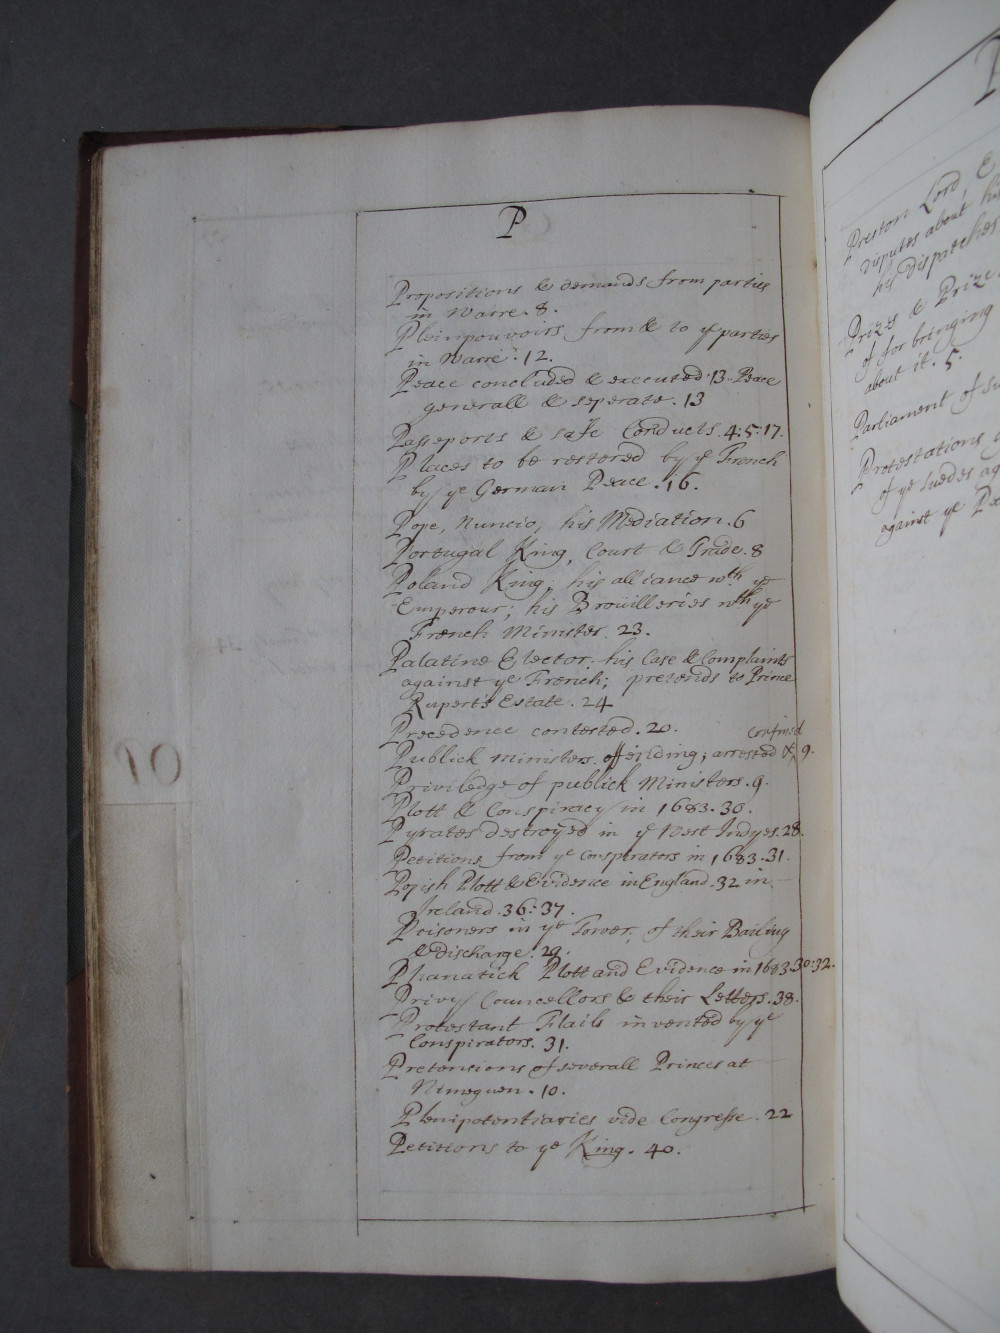 P
Propositions & demands from parties
in Warre. 8.
Pleinpouvoirs from & to ye parties
in Warre. 12.
Peace concluded & executed. 13. Peace
generall & seperate. 13
Passeports & safe Conducts. 4:5:17.
Places to be restored by ye French
by ye German Peace. 16.
Pope, Nuncio, his Mediation. 6
Portugal King, Court & Trade. 8
Poland King; his alliance wth ye
Emperour; his Broüilleries wth ye
French Minister. 23.
Palatine Elector. his Case & Complaints
against ye French; pretends to Prince
Rupert's Estate. 24
Precedence contested. 20.
confined
Publick ministers offending; arrested & 9.
Priviledge of publick Ministers. 9.
Plott & Conspiracy in 1683. 30.
Pyrates destroyed in ye West Indyes. 28.
Petitions from ye Conspirators in 1683. 31.
Popish Plott & Evidence in England. 32 in
Ireland. 36:37.
Prisoners in ye Tower, of their Bailing
& discharge. 29.
Phanatick Plott and Evidence in 1683. 30:32.
Privy Councellors & their Letters. 38.
Protestant Flails invented by ye
Conspirators. 31.
Pretensions of severall Princes at
Nimeguen. 10.
Plenipotentiaries vide Congresse. 22
Petitions to ye King. 40.
Preston Lord, E
disputes about his
his dispatches
Prizes & Prize
of for bringing
about it. 5.
Parliament of
Protestations
of ye Suedes
against ye